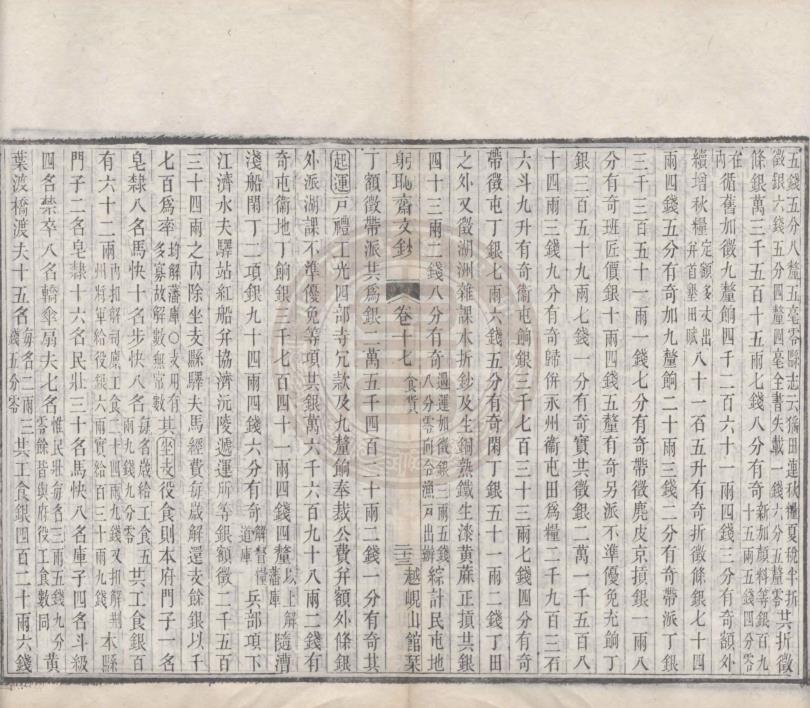 五錢五分八釐五毫零縣志云舊田連秋糧夏稅半折
徵銀六錢五分四釐四毫全書失載一錢六分五釐零其折徵
條銀萬三千五百十五雨七錢八分有奇新加顏料等銀百九十五兩五錢四分零
在內循舊加徵九釐餉四千二百六十一兩四錢三分有奇額外
續增秋糧定額多攴出并首墾田賦八十一石五升有奇折徵條銀七十四
兩四錢五分有奇加九釐餉二十兩三錢二分有奇帶派丁銀
三千三百五十一兩一錢七分有奇帶徵麂皮京損銀一兩八
分有奇班匠價銀十兩四錢五釐有奇另派不準優免充餉丁
銀三百五十九兩七錢八分有奇實共徵銀二萬一千五百八
十四兩三錢九分有奇歸併永州衞屯田為糧二千九百三石
六斗九升有奇衞屯餉銀三千七百三十三兩七錢四分有奇
帶徵屯丁銀七兩六錢五分有奇閑丁銀五十一兩二錢丁田
之外又徵湖洲雜課木折鈔及生銅熟鐵生漆黃蔴正損共銀
四十三兩二錢八分有奇遇運加徵銀三兩五錢八分零向合漁戸出辦綜計民屯地
躬恥齋文鈔 卷十七 食貨 二十三 越峴山館栞
丁額徵帶派共為銀二萬五千四百三十兩二錢一分有奇其
起運戸禮工光四部寺冗款及九釐餉奉裁公費并額外條銀
外派湖課不準優免等項共銀萬六千六百九十八兩二錢有
奇屯衞地丁餉銀三千七百四十一兩四錢四釐以上解藩庫隨漕
淺船閑丁二項銀九十四兩四錢六分有奇解督糧道庫兵部項下
江濟水夫驛站紅船并協濟沅陵遞運所等銀額徵二千五百
三十四兩之內除坐支縣驛夫馬經費每歲解還支餘銀以千
七百為率均解藩庫〇支用有多寡故解數無常數其坐支役食則本府門子一名
皂隸八名馬快十名步快八名每名歲給工食五兩九錢九分零共工食銀百
有六十二兩內扣解司廩工食二十四兩九錢又扣解荆州將軍給役銀六兩實給百三十兩九錢本縣
門子二名皂隸十六名民壯三十名馬快八名庫子四名斗級
四名禁卒八名轎傘扇夫七名惟民壯每名三兩五錢九分零餘皆與府役工食數同黃
葉渡橋渡夫十五名每名二兩錢五分零三共工食銀四百二十兩六錢